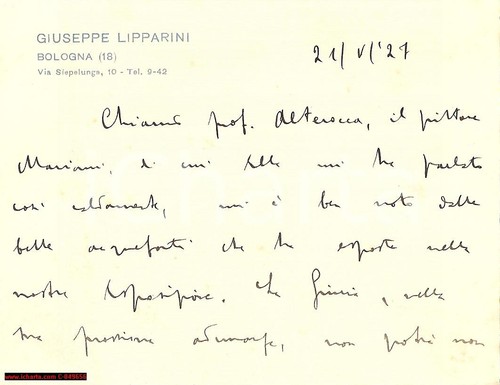 GIUSEPPE LIPPARINI
BOLOGNA (18)
Via Siepelunga, 10 - Tel. 9-42
21/V/'27
Chiarmo prof. Alterocca, il pittore
Mariani, di cui Ella mi ha parlato
così caldamente, mi è ben noto dalle
belle acqueforti che ha esposte nella
nostra Esposizione. La Giuria, nella
sua prossima adunanza, non potrà non
www.icharta.com